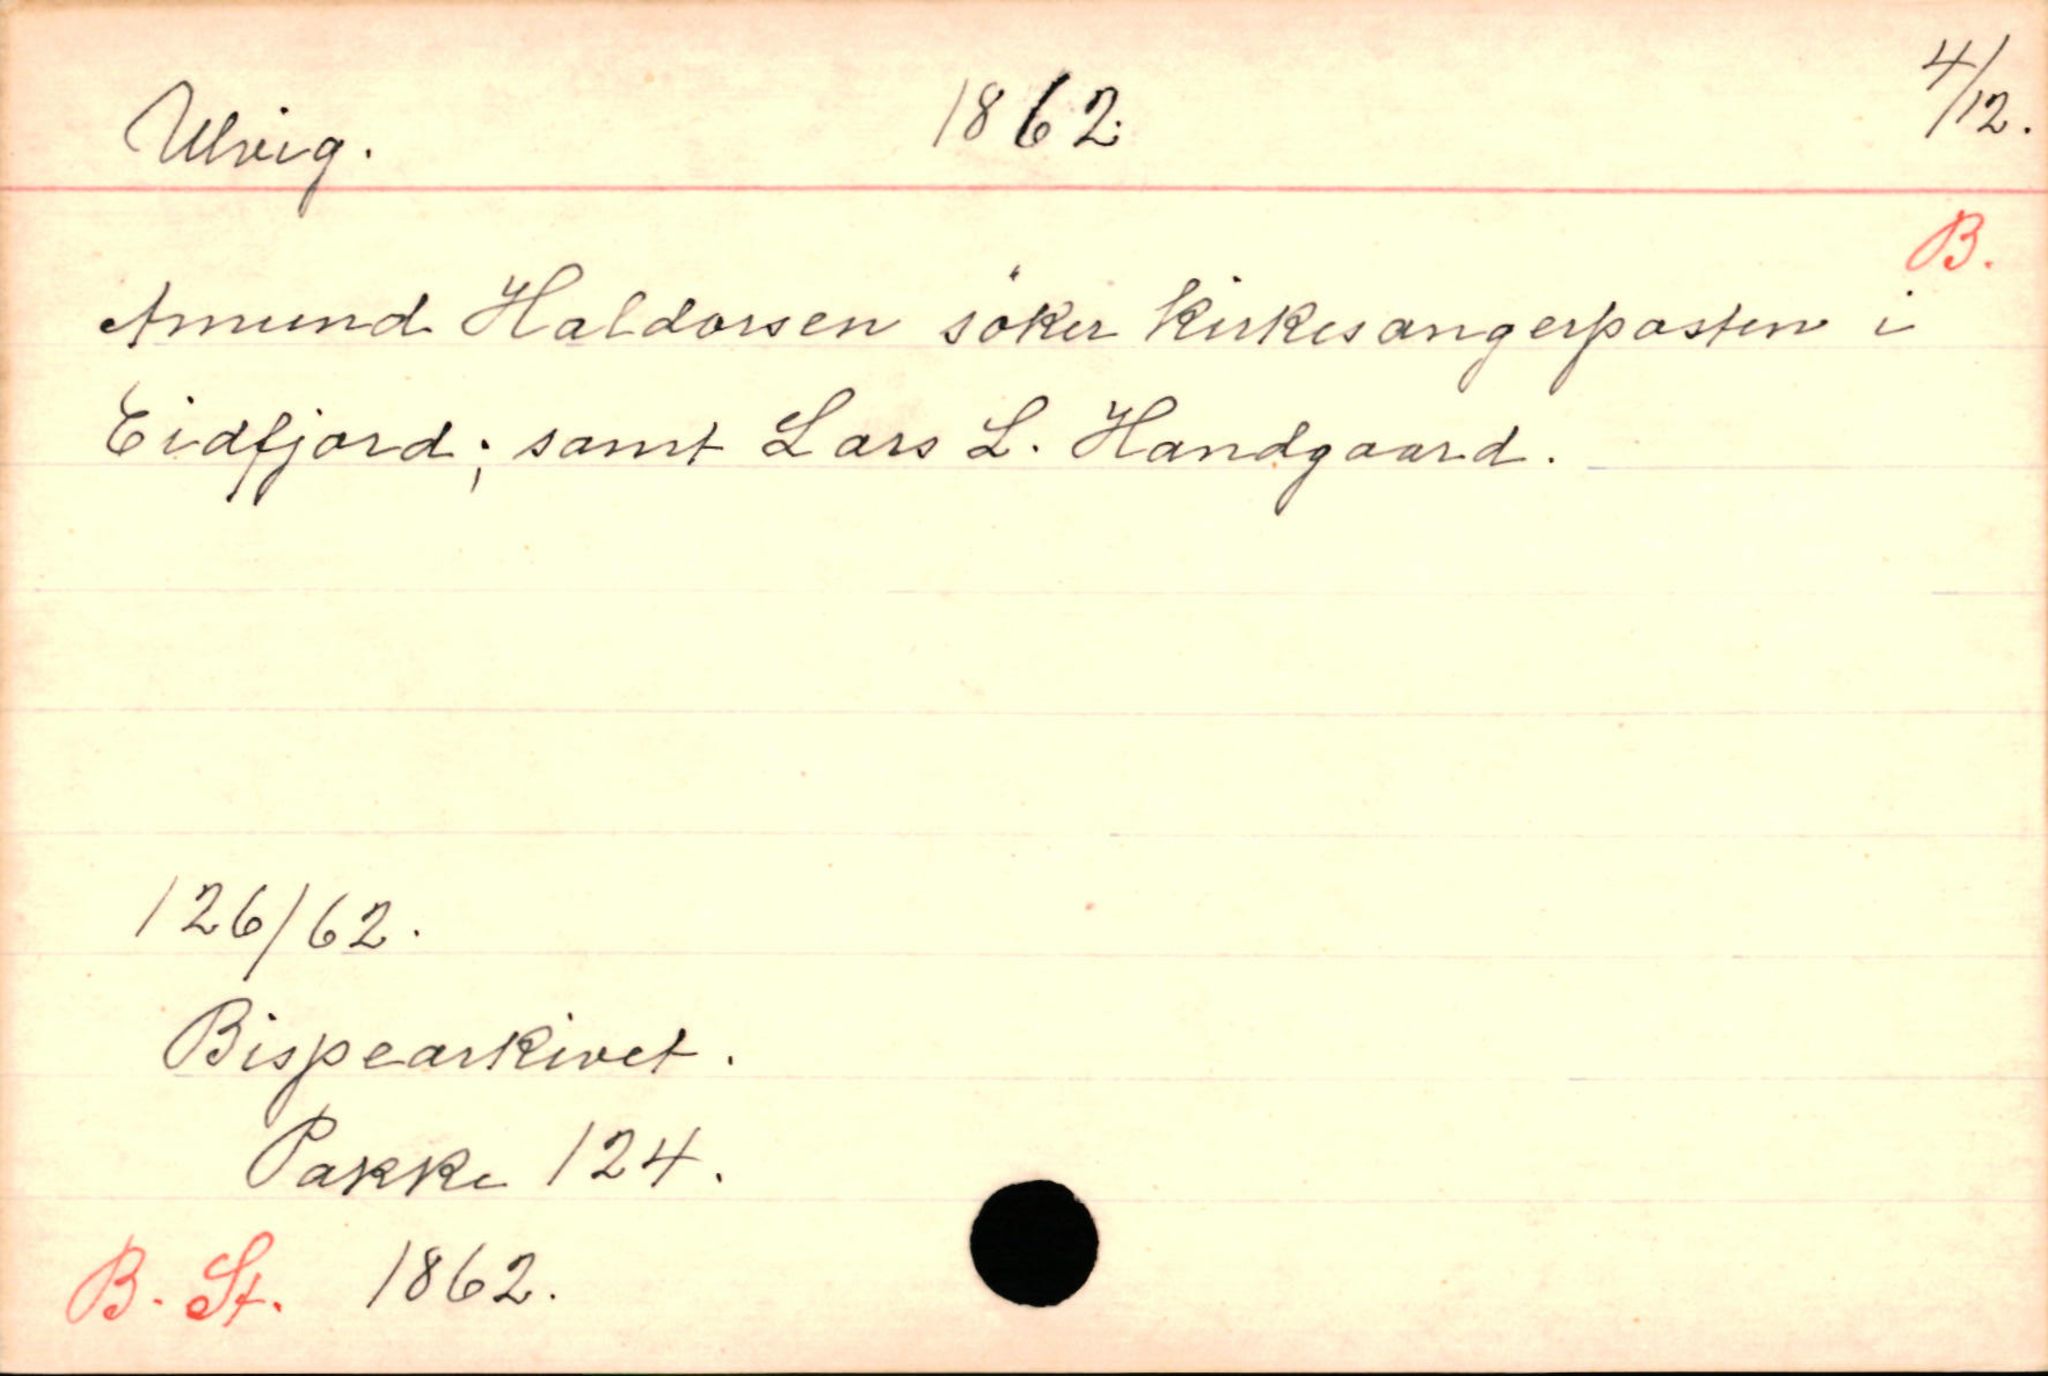 Ulvig. 1862. 4/12.
B.
Amund Haldorsen söker kirkesangerposten i
Eidfjord; samt Lars L. Handgaard.
126/62.
Bispearkivet.
Pakke 124.
B. St. 1862.